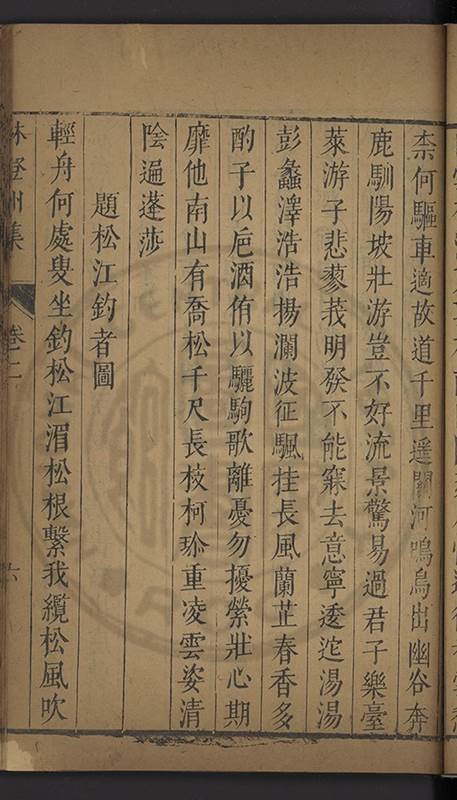 柰何驅車適故道千里遥關河鳴鳥出幽谷奔
鹿馴陽坡壯游豈不好流景驚易過君子樂臺
萊游子悲蓼莪明發不能寐去意寧逶迤湯湯
彭蠡澤浩浩揚瀾波征颿挂長風蘭芷春香多
酌子以巵酒侑以驪駒歌離憂勿擾縈壯心期
靡他南山有喬松千尺長枝柯珎重凌雲姿清
陰遍蓬莎
題松江釣者圖
輕舟何處叟坐釣松江湄松根繫我纜松風吹
林登州集 卷二 六